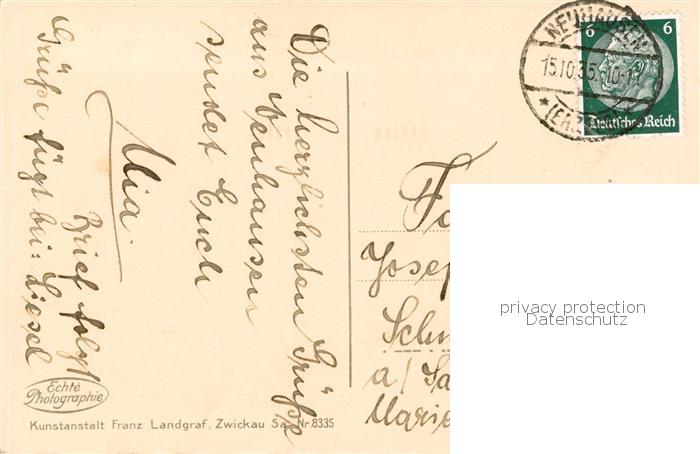 Die herzlichsten Grüße
aus Neuhausen
sendet Euch
Mia.
Brief folgt
Grüße fügt bei: Liesel
Echte
Photographie
Kunstanstalt Franz Landgraf, Zwickau Sa. Nr. 8335
NEUHAUSEN
15.10.35.-10-11
(ERZ
6 6
Deutsches Reich
Fa
Josep
Schn
a/ Sa
Marie
privacy protection
Datenschutz